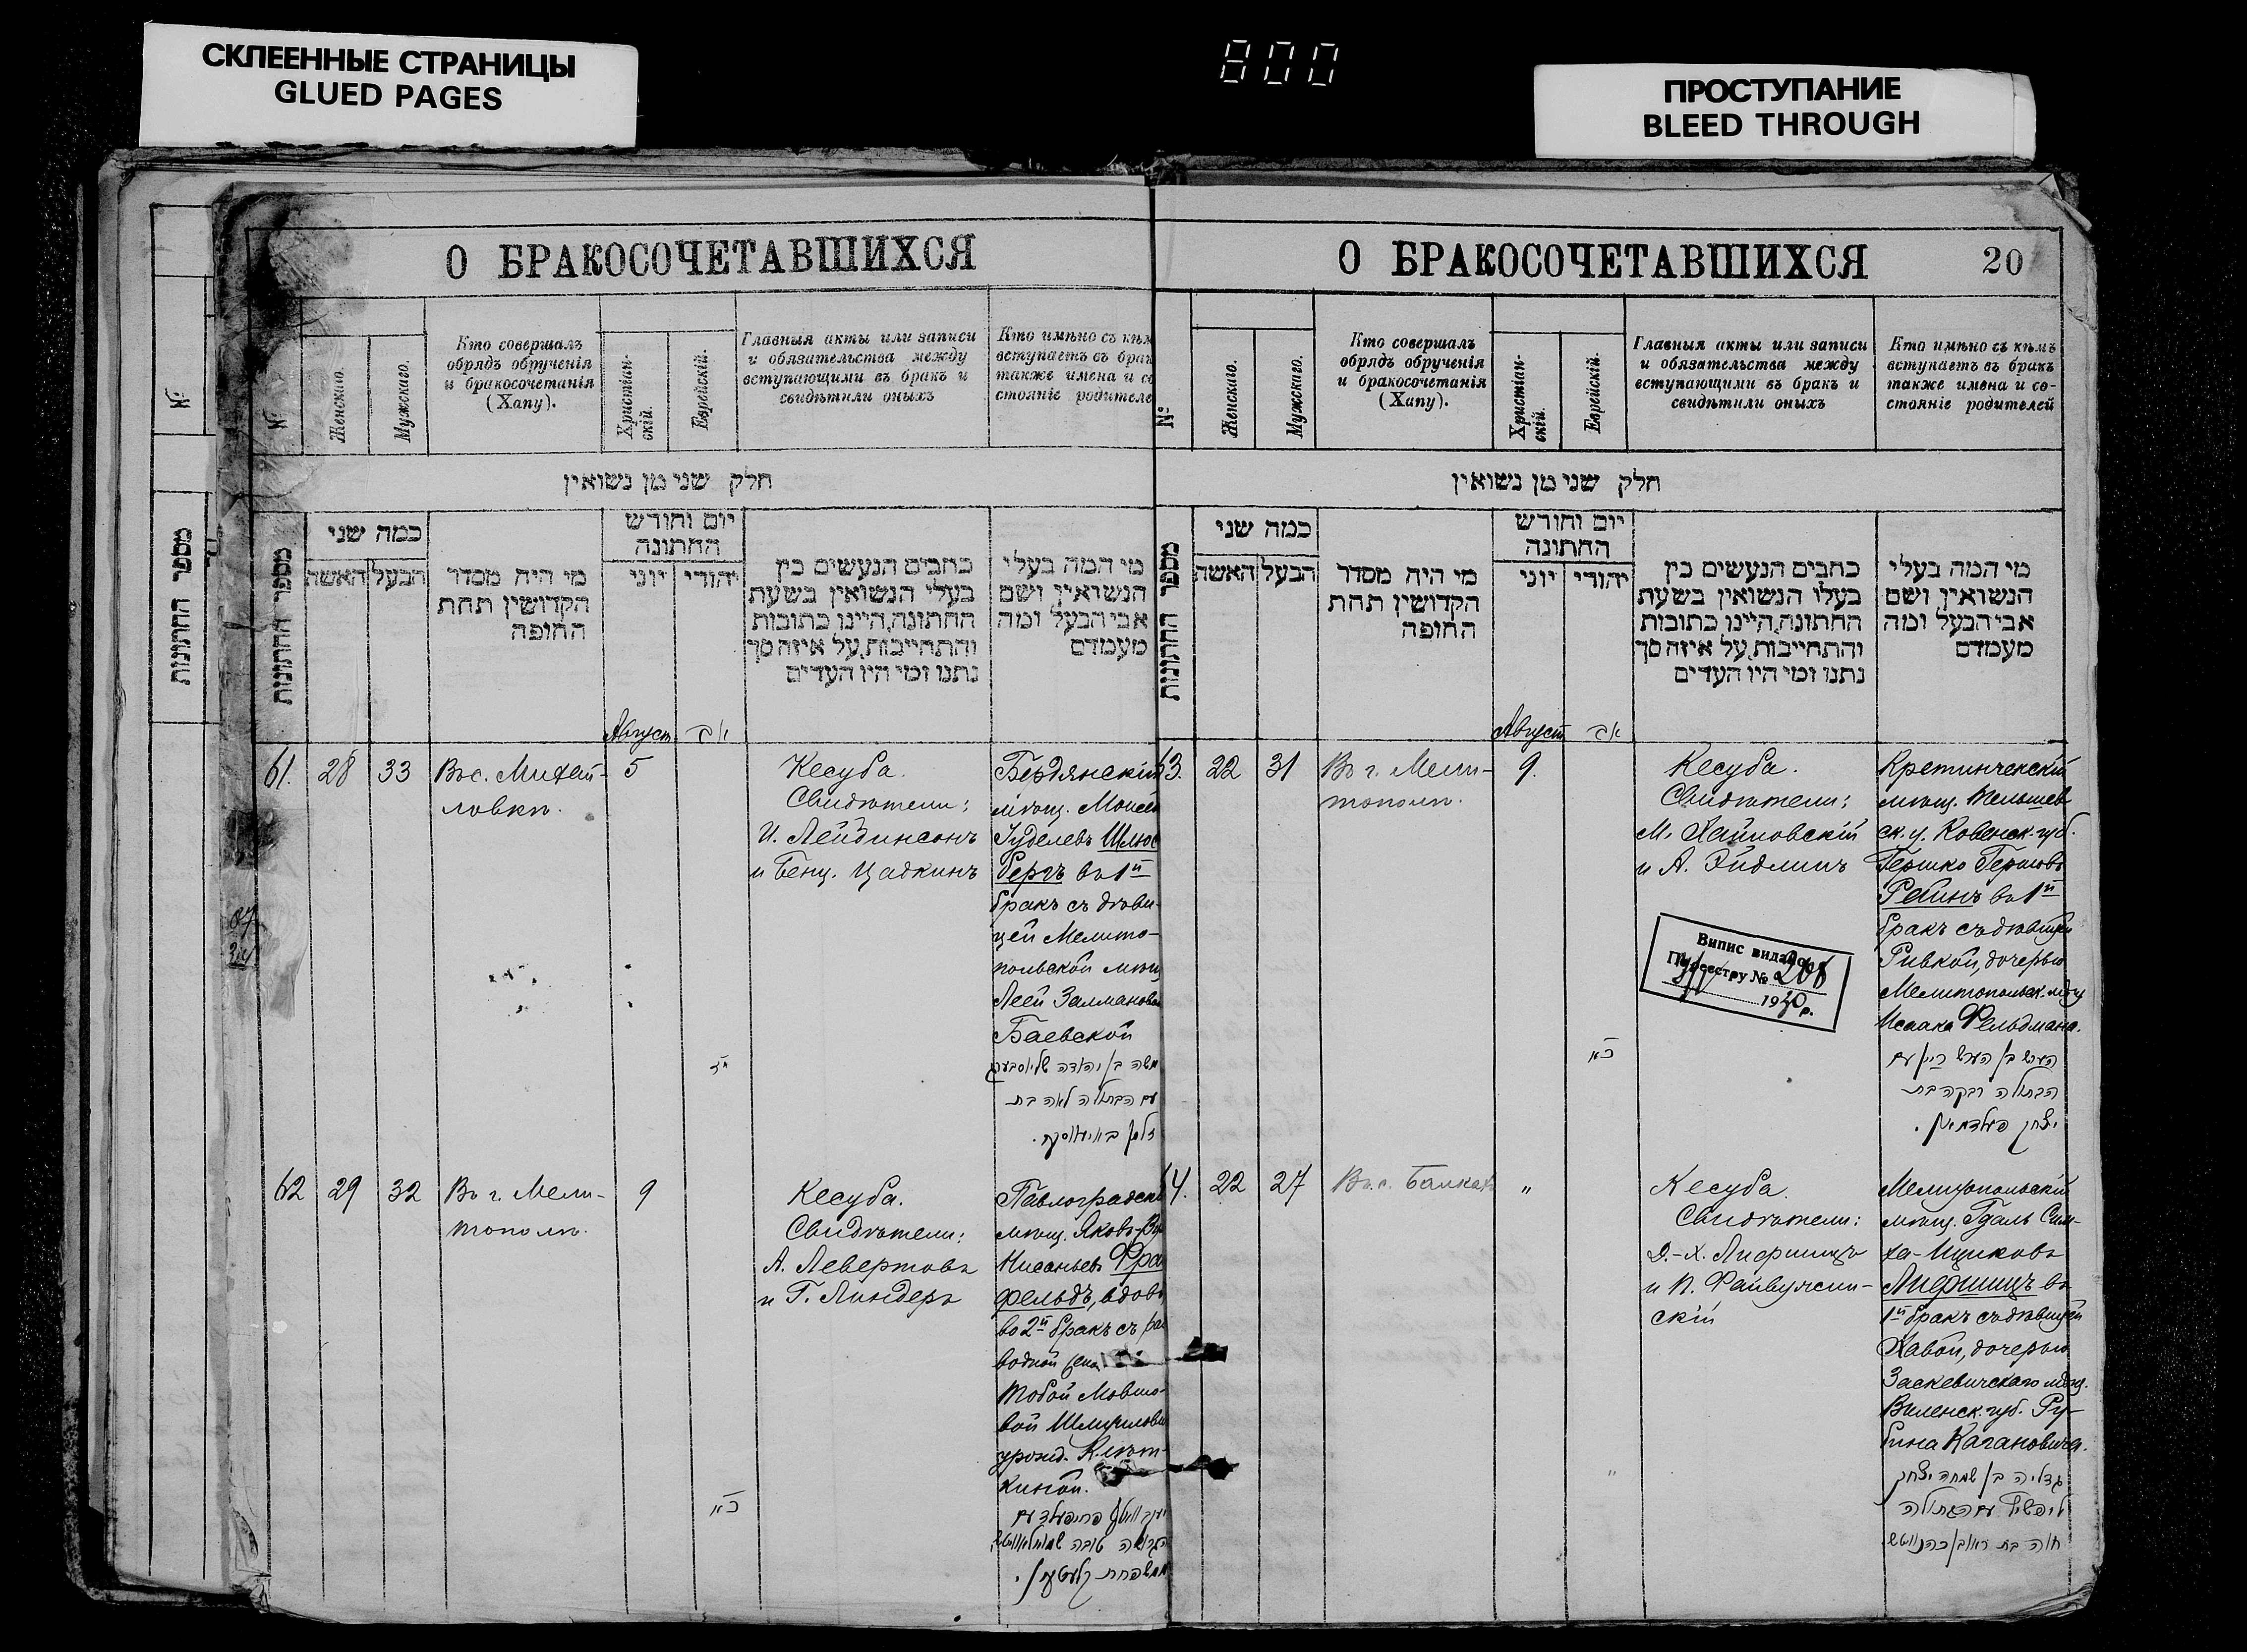 СКЛЕЕННЫЕ СТРАНИЦЫ
GLUED PAGES
800
ПРОСТУПАНИЕ
BLEED THROUGH
О БРАКОСОЧЕТАВШИХСЯ
№
№
Женскаго.
Мужскаго.
Кто совершалъ
обрядъ обрученія
и бракосочетанія
(Хапу).
Христіан-
скій.
Еврейскій.
Главныя акты или записи
и обязательства между
вступающими въ бракъ и
свидѣтили оныхъ
Кто имѣно съ кѣм
вступаетъ въ брак
также имена и со
стояніе родителе
חלק שני מן נשואין
מספר החתונות
מספר החתונות
כמה שני
האשה
הבעל
מי היה מסדר
הקדושין תחת
החופה
יום וחודש
החתונה
יוני
יהודי
כתבים הנעשים בין
בעלי הנשואין בשעת
החתונה, היינו כתובות
והתחייבות, על איזה סך
נתנו ומי היו העדים
מי המה בעלי
הנשואין ושם
אבי הבעל ומה
מעמדם
Август
אב
61.
28
33
Въ с. Михай-
ловкѣ.
5
יד
Кесуба.
Свидѣтели:
И. Лейбинсонъ
и Бенц. Цадкинъ
Бердянскій
мѣщ. Моисей
Іуделевъ Шлюс
бергъ въ 1й
бракъ съ дѣви-
цей Мелито-
польской мѣщ
Леей Залмановой
Баевской
משה בן יהודה שליוסבערג
עם הבתולה לאה בת
זלמן באיעווסקי.
62
29
32
Въ г. Мели-
тополѣ.
9
כא
Кесуба.
Свидѣтели:
А. Левертовъ
и Г. Линдеръ
Павлоградскі
мѣщ. Яковъ-
Нисоньевъ Фра
фельдъ, вдовъ
во 2й бракъ съ раз
водной
Тобой Мовшо-
вой
урожд.
киной.
О БРАКОСОЧЕТАВШИХСЯ
20
№
Женскаго.
Мужскаго.
Кто совершалъ
обрядъ обрученія
и бракосочетанія
(Хапу).
Христіан-
скій.
Еврейскій.
Главныя акты или записи
и обязательства между
вступающими въ бракъ и
свидѣтили оныхъ
Кто имѣно съ кѣмъ
вступаетъ въ бракъ
также имена и со-
стояніе родителей
חלק שני מן נשואין
מספר החתונות
כמה שני
האשה
הבעל
מי היה מסדר
הקדושין תחת
החופה
יום וחודש
החתונה
יוני
יהודי
כתבים הנעשים בין
בעלי הנשואין בשעת
החתונה, היינו כתובות
והתחייבות, על איזה סך
נתנו ומי היו העדים
מי המה בעלי
הנשואין ושם
אבי הבעל ומה
מעמדם
Август
אב
63.
22
31
Въ г. Мели-
тополѣ.
9.
כא
Кесуба.
Свидѣтели:
М. Хаймовскій
и А. Эйдлинъ
Випис видано
По реєстру № 208
1930 р.
Кретингенскій
мѣщ. Тельшев
ск. у. Ковенск. губ.
Гершко Гершовъ
Рейнъ въ 1й
бракъ съ дѣвицей
Ривкой, дочерью
Мелитопольск. мѣщ
Исаака Фельдмана.
הערש בן הערש ריין עם
הבתולה רבקה בת
יצחק פעלדמאן.
64.
22
27
Въ с. Балкахъ
"
"
Кесуба.
Свидѣтели:
Д.-Х. Лифшицъ
и П. Файвужин-
скій
Мелитопольскій
мѣщ. Гдаль Сим-
ха-Ициковъ
Лифшицъ въ
1й бракъ съ дѣвицей
Хавой, дочерью
Заскевичскаго мѣщ.
Виленск. губ. Ру-
бина Кагановича.
גדליה בן שמחה יצחק
ליפשיץ עם הבתולה
חוה בת ראובן כהנוויטש